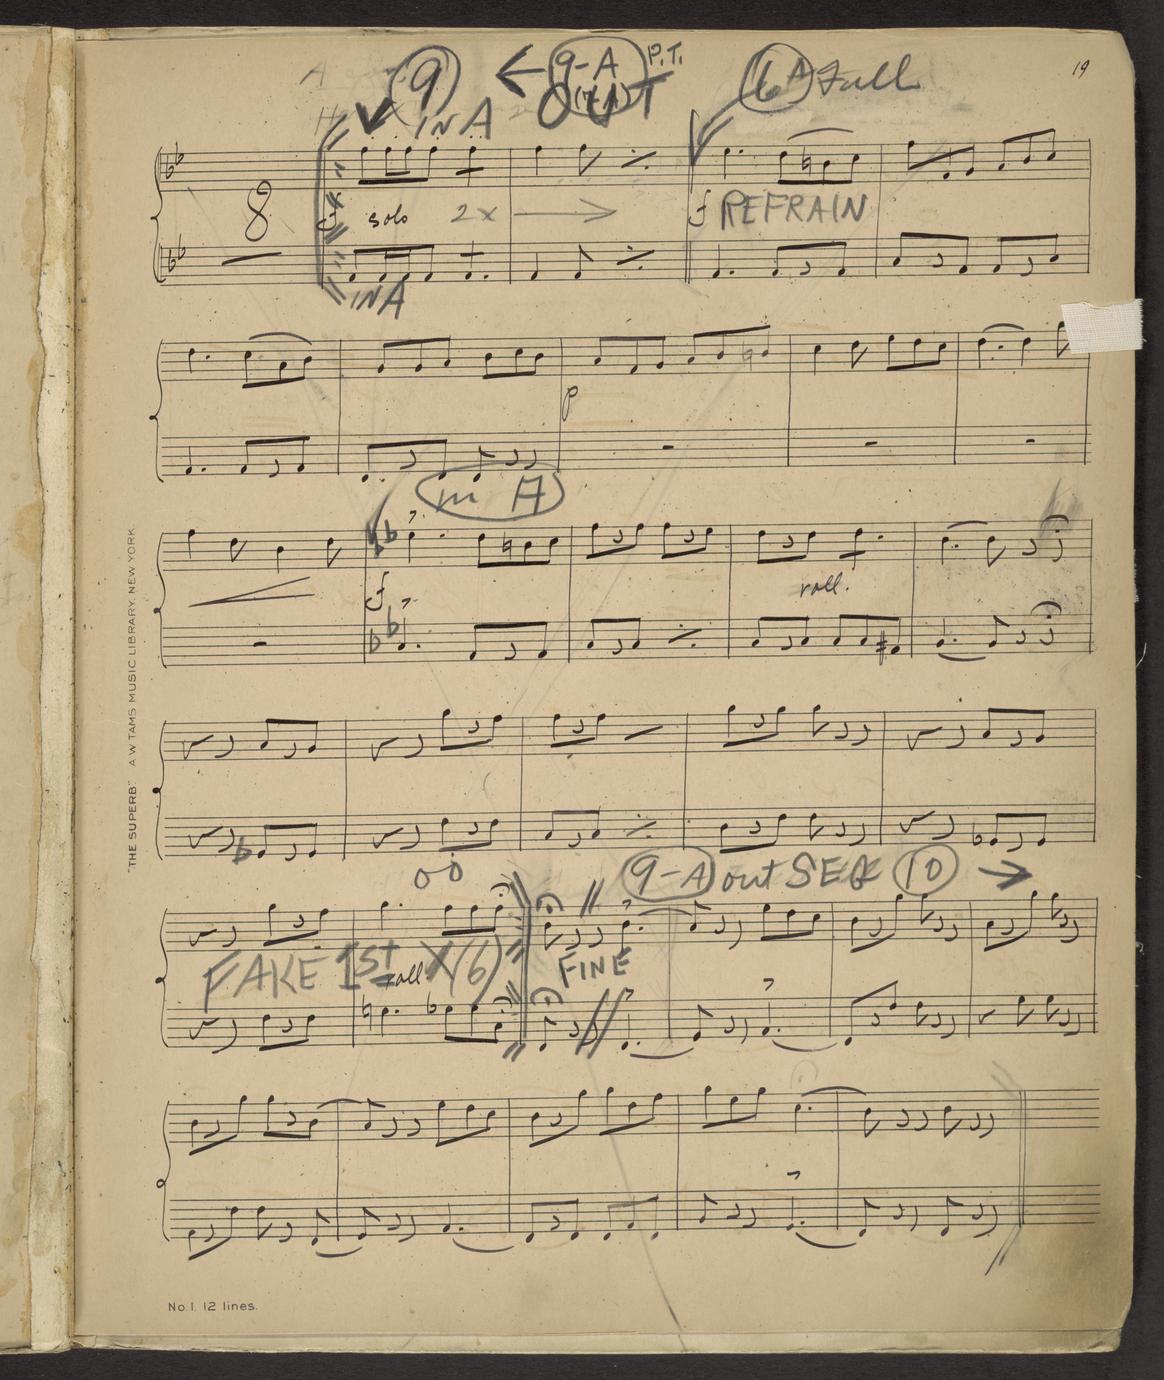 19
9 ← 9-A P.T. 6A Full
OUT
IN A
8
solo 2x
f REFRAIN
IN A
p
in A
f
rall.
9-A out SEG 10 →
FAKE 1st X (6)
rall.
FINE
"THE SUPERB." A W TAMS MUSIC LIBRARY, NEW YORK
No. 1. 12 lines.